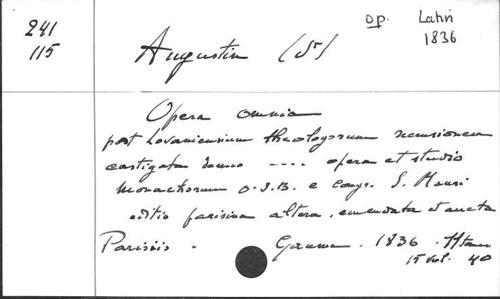 241
115
op. Latin
1836
Augustin (St)
Opera omnia
post Lovaniensium theologorum recensionem
castigata denuo .... opera et studio
monachorum O.S.B. e congr. S. Mauri
editio parisina altera, emendata et aucta
Parisiis. Gaume. 1836.
15 vol. 40